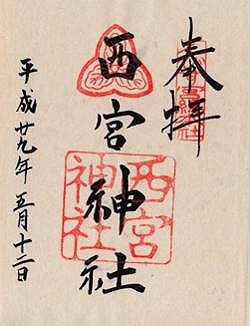 奉拝
西宮神社
西宮神社
平成廿九年五月十二日